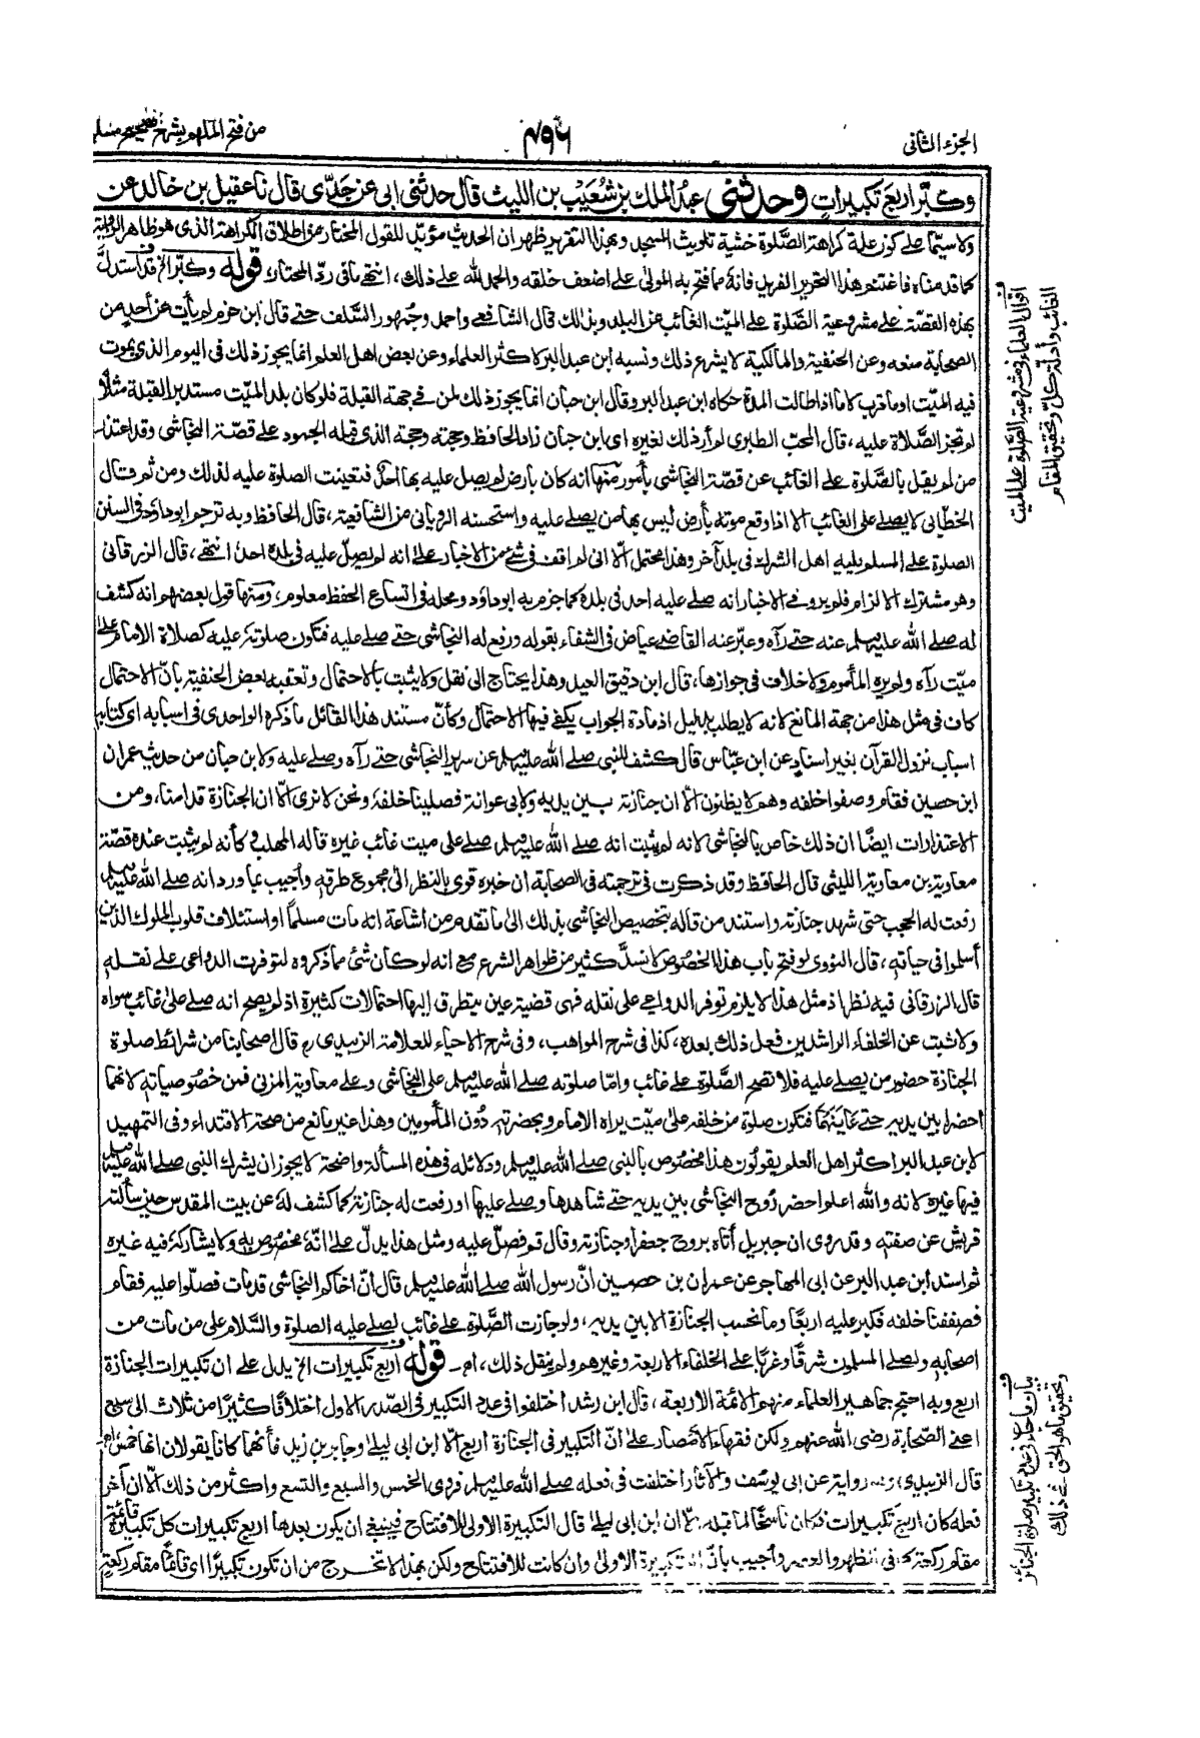 الجزء الثانى
٤٩٦
من فتح الملهم بشرح صحيح مسلم
وكبّر اربع تكبيرات وحدثنى عبد الملك بن شُعَيْب بن الليث قال حدثنى ابى عن جَدّى قال نا عقيل بن خالد عن
ولا سيّما على كون علة كراهة الصَّلوة خشية تلويث المسجد وبهذا التقرير ظهر ان الحديث مؤيّد للقول المختار من اطلاق الكراهة الذى هو ظاهر الرواية
كما قدمناه فاغتنم هذا التحرير الفريد فانه مما فتح به المولىٰ على اضعف خلقه والحمد لله على ذلك، انتهى ما فى ردّ المحتار، قوله وكبّر الخ قد استدلّ
بهذه القصّة على مشروعية الصَّلوة على الميّت الغائب عن البلد وبذلك قال الشافعى واحمد وجُمهور السَّلف حتى قال ابن حزم لم يأت عن أحد من
الصحابة منعه وعن الحنفية والمالكية لا يشرع ذلك ونسبه ابن عبد البر لاكثر العلماء وعن بعض اهل العلم انما يجوز ذلك فى اليوم الذى يموت
فيه الميّت او ما قرب لا ما اذا طالت المدة حكاه ابن عبد البر وقال ابن حبان انما يجوز ذلك لمن فى جهة القبلة فلو كان بلد الميّت مستدبر القبلة مثلًا
لم تجز الصَّلاة عليه، قال المحبّ الطبرى لم أر ذلك لغيره اى ابن حبان زاد الحافظ وحجته وحجة الذى قبله الجمود على قصّة النجاشى وقد اعتذر
من لم يقل بالصَّلوة على الغائب عن قصّة النجاشى بأمور منها انه كان بأرض لم يصل عليه بها احدٌ فتعينت الصلوة عليه لذلك ومن ثم قال
الخطابى لا يصلى على الغائب الا اذا وقع موته بأرض ليس بها من يصلى عليه واستحسنه الرويانى من الشافعية، قال الحافظ وبه ترجم ابو داؤد فى السنن
الصلوة على المسلم يليه اهل الشرك فى بلد آخر وهذا محتمل الّا انى لم اقف فى شئ من الاخبار علىٰ انه لم يصلّ عليه فى بلده احد انتهى، قال الزرقانى
وهو مشترك الالزام فلم يرو فى الاخبار انه صلى عليه احد فى بلده كما جزم به ابو داؤد ومحله فى اتساع الحفظ معلوم، ومنها قول بعضهم انه كشف
له صلى الله عليه وسلم عنه حتى رآه وعبّر عنه القاضى عياض فى الشفاء بقوله ورفع له النجاشى حتى صلى عليه فتكون صلوته عليه كصلاة الامام على
ميّت رآه ولم يره المأموم ولا خلاف فى جوازها، قال ابن دقيق العيد وهذا يحتاج الى نقل ولا يثبت بالاحتمال وتعقبه بعض الحنفية بأنّ الاحتمال
كاف فى مثل هذا من جهة المانع لانه لا يطلب بدليل اذ مادة الجواب يكفى فيها الاحتمال وكأنّ مستند هذا القائل ما ذكره الواحدى فى اسبابه اى كتابه
اسباب نزول القرآن بغير اسناد عن ابن عبّاس قال كشف للنبى صلى الله عليه وسلم عن سرير النجاشى حتى رآه وصلى عليه ولابن حبان من حديث عمران
ابن حصين فقام وصفوا خلفه وهم لا يظنون الّا ان جنازته بين يديه ولابى عوانة فصلينا خلفه ونحن لا نرى الّا ان الجنازة قدامنا، ومن
الاعتذارات ايضًا ان ذلك خاص بالنجاشى لانه لم يثبت انه صلى الله عليه وسلم صلى على ميت غائب غيره قاله المهلب وكأنه لم يثبت عنده قصّة
معاوية بن معاوية الليثى قال الحافظ وقد ذكرت فى ترجمته فى الصحابة ان خبره قوى بالنظر الىٰ مجموع طرقه وأجيب بما ورد انه صلى الله عليه وسلم
رفعت له الحجب حتى شهد جنازته واستند من قاله بتخصيص النجاشى بذلك الى ما تقدم من اشاعة انه مات مسلمًا او استئلاف قلوب الملوك الذين
أسلموا فى حياته، قال النووى لو فتح باب هذا الخصُوص لانسدَّ كثير من ظواهر الشرع مع انه لو كان شئ مما ذكروه لتوفرت الدواعى على نقله
قال الزرقانى فيه نظر اذ مثل هذا لا يلزم توفر الدواعى على نقله فهى قضية عين يتطرق إليها احتمالات كثيرة اذ لم يصح انه صلى علىٰ غائب سواه
ولا ثبت عن الخلفاء الراشدين فعل ذلك بعده، كذا فى شرح المواهب، وفى شرح الاحياء للعلامة الزبيدى رح قال اصحابنا من شرائط صلوة
الجنازة حضور من يصلى عليه فلا تصح الصَّلوة على غائب وامّا صلوته صلى الله عليه وسلم على النجاشى وعلى معاوية المزنى فمن خصُوصياته لانهما
احضرا بين يديه حتى عَايَنَهُمَا فتكون صلوة من خلفه علىٰ ميّت يراه الامام وبحضرته دُون المأمومين وهذا غير مانع من صحة الاقتداء وفى التمهيد
لابن عبد البر اكثر اهل العلم يقولون هذا مخصُوص بالنبى صلى الله عليه وسلم ودلائله فى هذه المسألة واضحة لا يجوز ان يشرك النبى صلى الله عليه وسلم
فيها غيره لانه والله اعلم احضر رُوح النجاشى بين يديه حتى شاهدها وصلى عليها او رفعت له جنازته كما كشف لهٗ عن بيت المقدس حين سألته
قريش عن صفته وقد روى ان جبريل أتاه بروح جعفر او جنازته وقال قم فصلّ عليه ومثل هذا يدلّ علىٰ انّه مخصُوص به ولا يشاركه فيه غيره
ثم اسند ابن عبد البر عن ابى المهاجر عن عمران بن حصين انّ رسول الله صلى الله عليه وسلم قال انّ اخاكم النجاشى قد مات فصلّوا عليه فقام
فصففنا خلفه فكبر عليه اربعًا وما نحسب الجنازة الا بين يديه، ولو جازت الصَّلوة على غائب لصلى عليه الصلوة والسَّلام على من مات من
اصحابه ولصلى المسلمون شرقًا وغربًا على الخلفاء الاربعة وغيرهم ولم ينقل ذلك، اه‍ـ قوله أربع تكبيرات الخ يدل على ان تكبيرات الجنازة
اربع وبه احتج جماهير العلماء منهم الائمة الاربعة، قال ابن رشد اختلفوا فى عدد التكبير فى الصّدر الاول اختلافًا كثيرًا من ثلاث الى سبع
اعنى الصّحابة رضى الله عنهم ولكن فقهاء الامصار علىٰ انّ التكبير فى الجنازة اربع الّا ابن ابى ليلىٰ وجابر بن زيد فأنهما كانا يقولان انها خمس اه
قال الزبيدى وهى رواية عن ابى يوسف والآثار اختلفت فى فعله صلى الله عليه وسلم فروى الخمس والسبع والتسع واكثر من ذلك الّا ان آخر
فعله كان اربع تكبيرات فكان ناسخًا لما قبله ان ابن ابى ليلىٰ قال التكبيرة الاولىٰ للافتتاح فينبغى ان يكون بعدها اربع تكبيرات كل تكبيرة قائمة
مقام ركعة كما فى الظهر والعصر وأجيب بأنّ التكبيرة الاولىٰ وان كانت للافتتاح ولكن بهذا لا تخرج من ان تكون تكبيرًا اى قائمًا مقام ركعة
اقوال العلماء فى مشروعية الصَّلوة على الميت
الغائب وأدلة كلّ وتحقيق المقام
بيان ما جاء فى عدد تكبير صلوة الجنائز
وتحقيق ما هو الحق فى ذلك